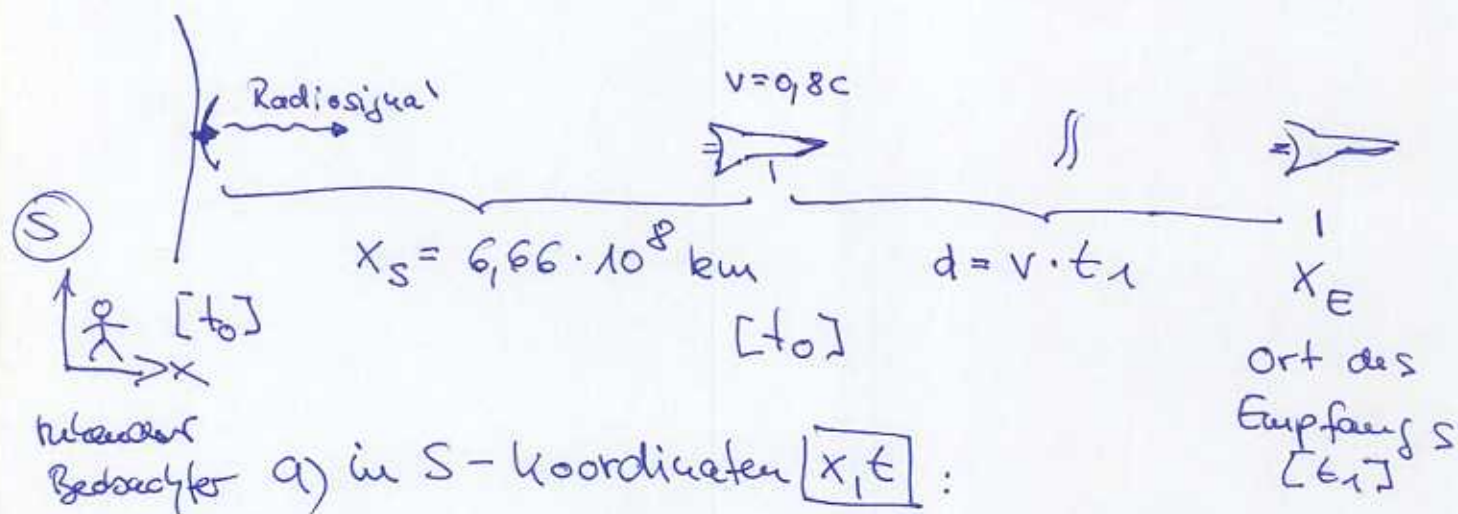 Radiosignal
v=0,8c
S
x_S = 6,66·10^8 km
d = v·t_1
x_E
[t_0]
[t_0]
x
Ort des
Empfangs
[t_1]
ruhender
Beobachter
a) in S-Koordinaten [x,t] :